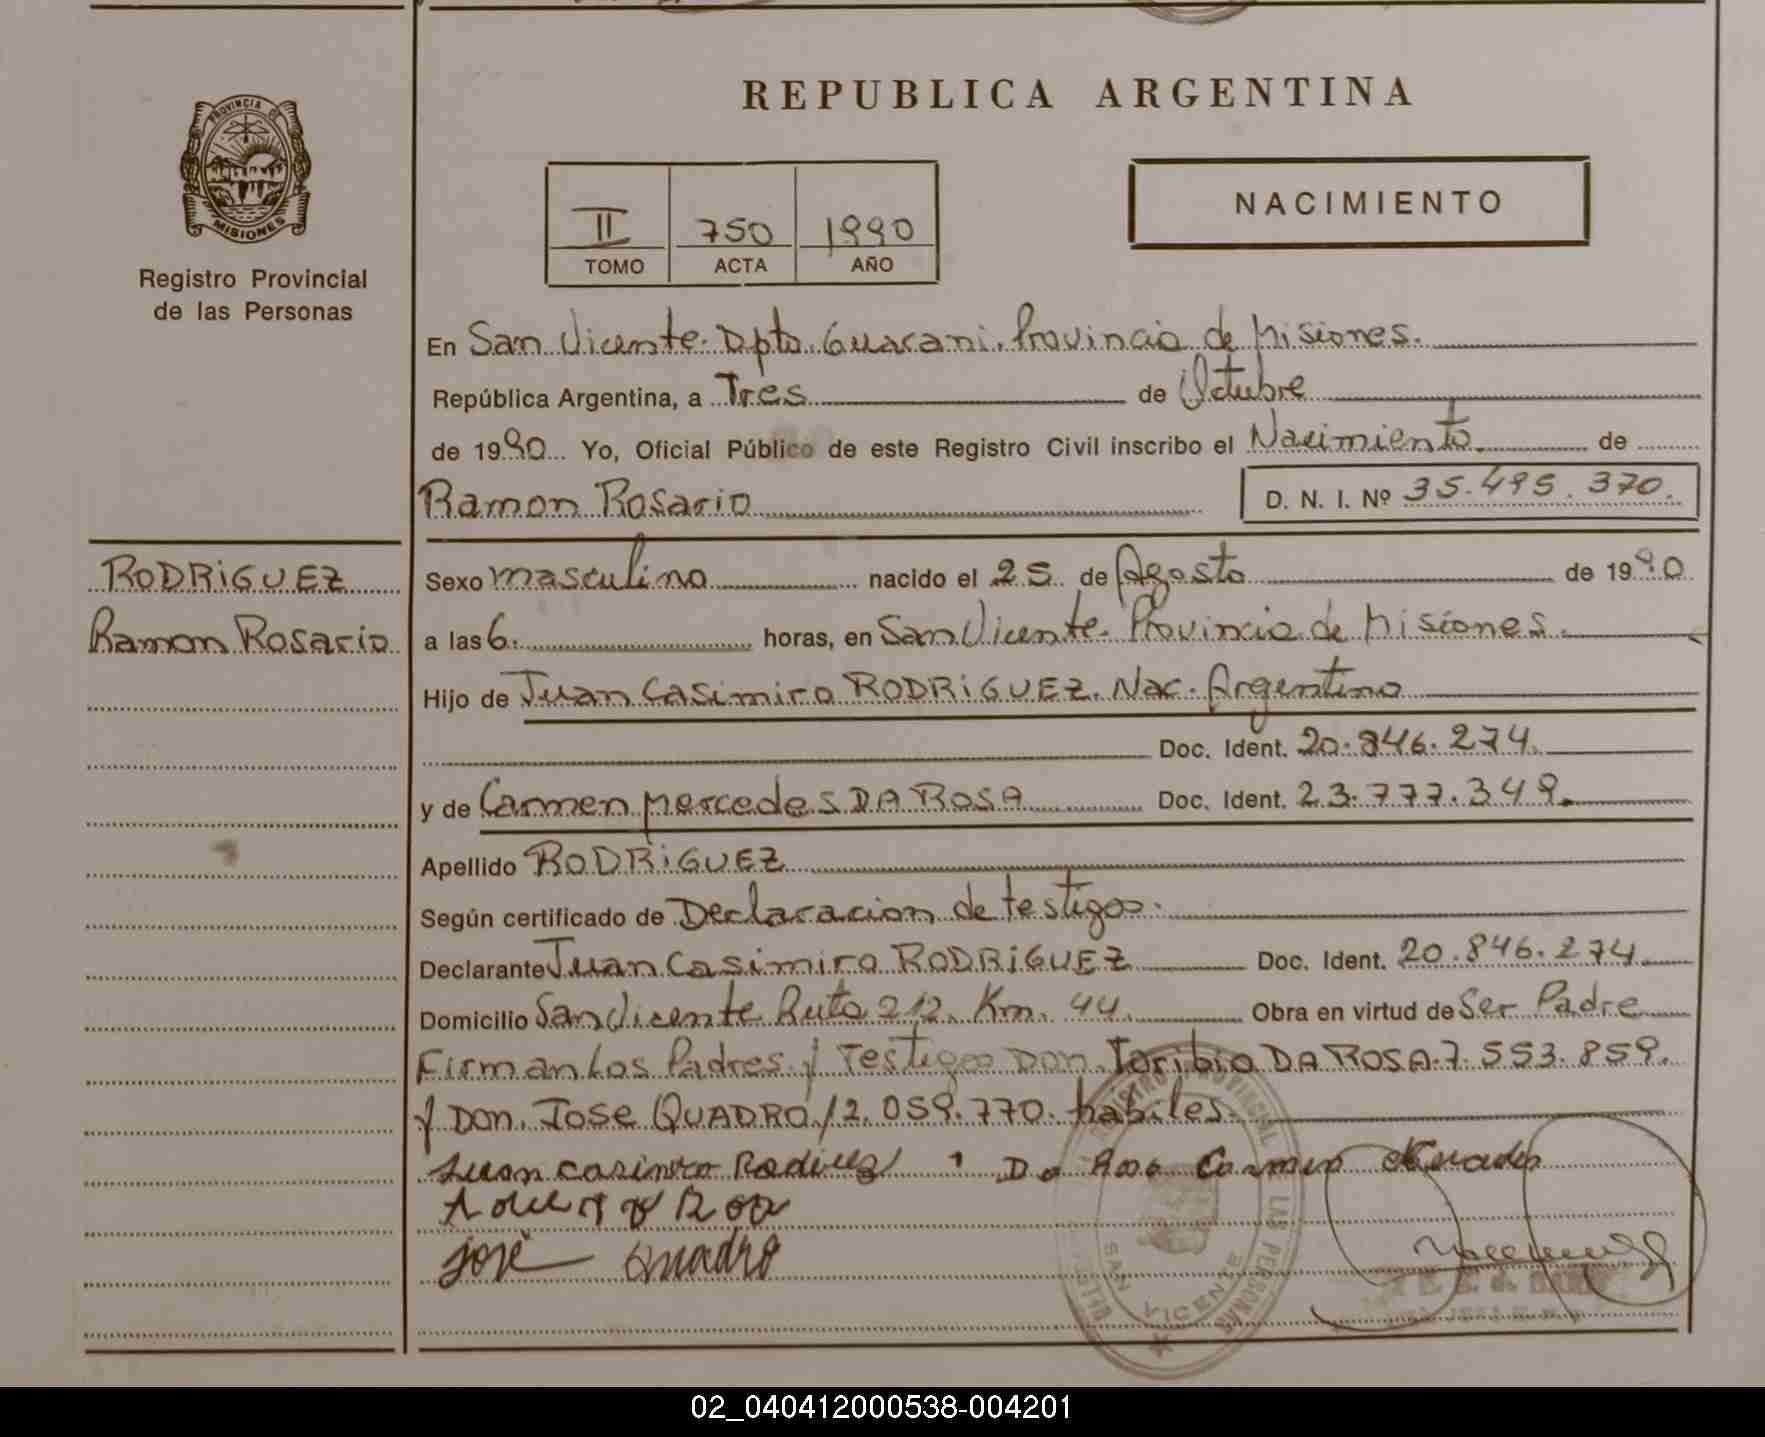 REPUBLICA ARGENTINA
PROVINCIA DE
MISIONES
Registro Provincial
de las Personas
II 750 1990
TOMO ACTA AÑO
NACIMIENTO
En San Vicente. Dpto. Guarani. Provincia de Misiones.
República Argentina, a Tres de Octubre
de 1990 Yo, Oficial Público de este Registro Civil inscribo el Nacimiento de
Ramon Rosario D. N. I. Nº 35.495.370.
RODRiGUEZ
Ramon Rosario
Sexo masculino nacido el 25 de Agosto de 1990
a las 6. horas, en San Vicente. Provincia de Misiones.
Hijo de Juan Casimiro RODRiGUEZ. Nac. Argentino
Doc. Ident. 20.846.274.
y de Carmen Mercedes DA ROSA Doc. Ident. 23.777.349.
Apellido RODRiGUEZ
Según certificado de Declaracion de testigos.
Declarante Juan Casimiro RODRiGUEZ Doc. Ident. 20.846.274.
Domicilio San Vicente Ruta 212. Km. 44. Obra en virtud de Ser Padre
Firman Los Padres y Testigos Don. Toribio DA ROSA.7.553.859.
y Don. Jose QUADRO/2.059.770. habiles.
Juan casimiro Da Rosa Carmen
José Quadro
REGISTRO PROVINCIAL DE LAS PERSONAS
SAN VICENTE
02_040412000538-004201